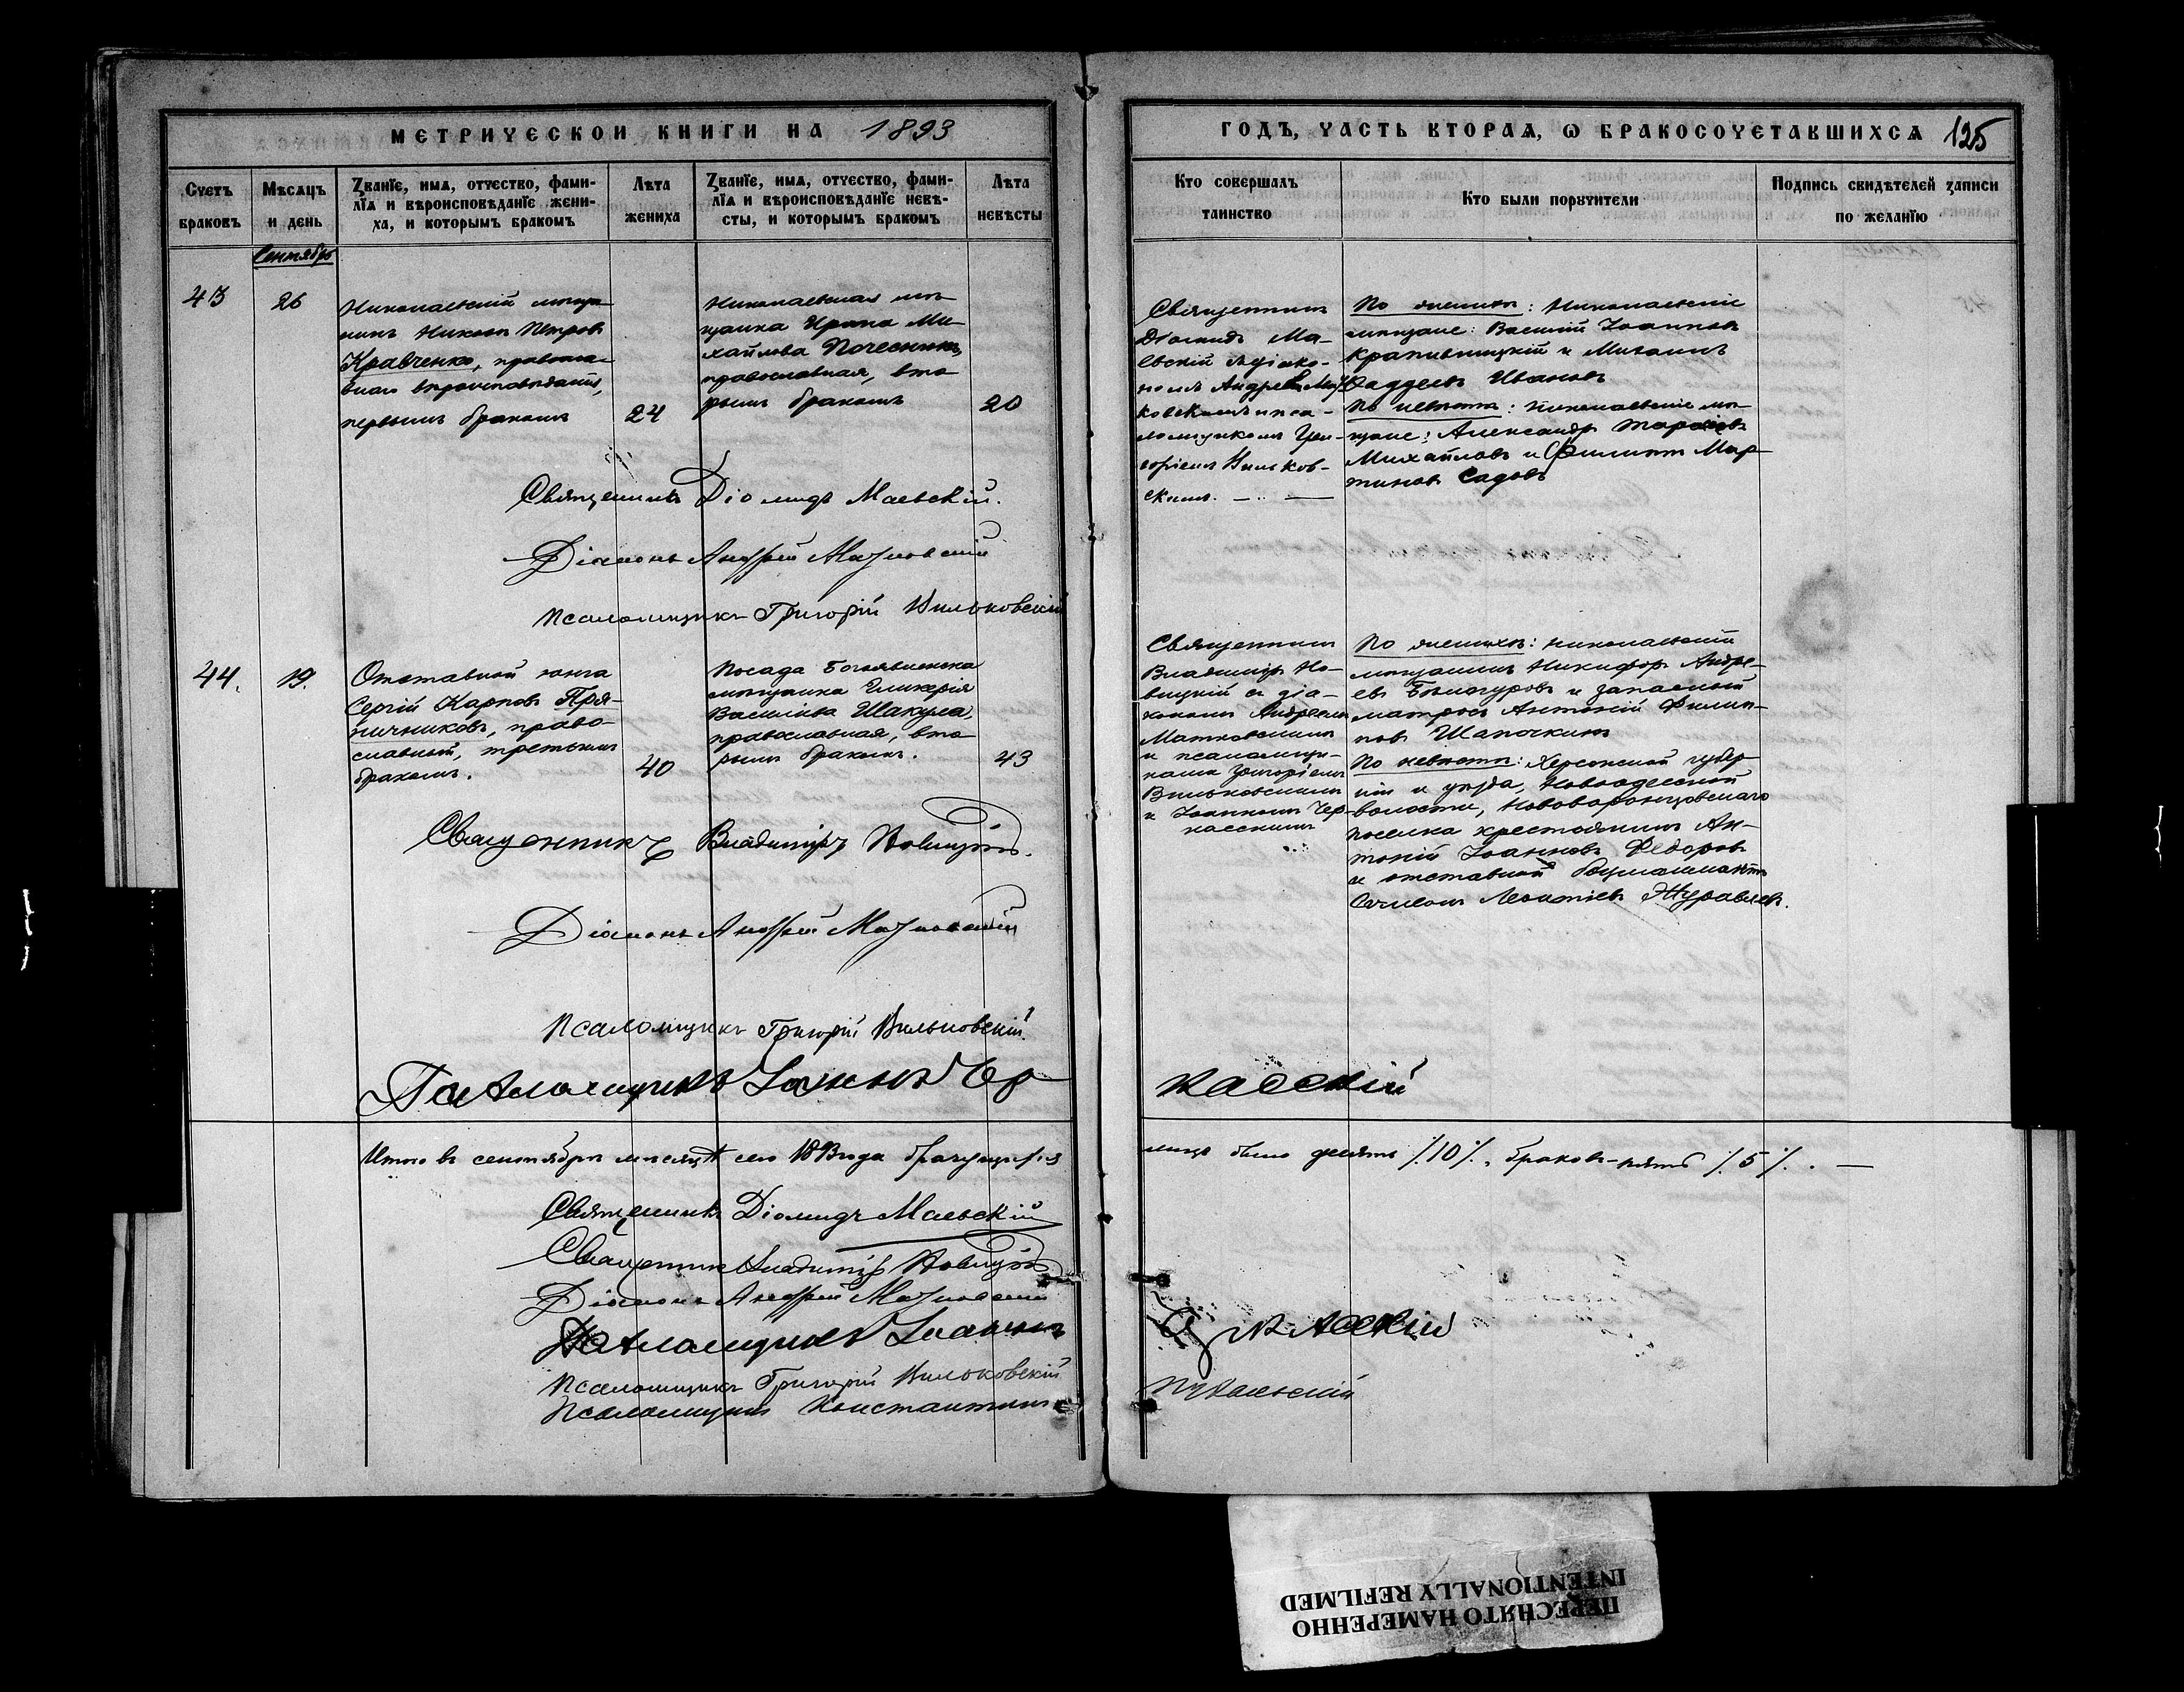 МЕТРИЧЕСКОИ КНИГИ НА 1893
Счетъ браковъ
Мѣсяцъ и день
Званїе, имя, отчество, фами-
лїя и вѣроисповѣданїе жени-
ха, и которымъ бракомъ
Лѣта жениха
Званїе, имя, отчество, фами-
лїя и вѣроисповѣданїе невѣ-
сты, и которымъ бракомъ
Лѣта невѣсты
Сентябрь
43
26
Николаевскій мѣща-
нинъ Никола Петровъ
Кравченко, правосла-
внаго вѣроисповѣданія,
первымъ бракомъ
24
Николаевская мѣ-
щанка Ирина Ми-
хайлова
православная, вто-
рымъ бракомъ
20
Священникъ Діомидъ Маевскій.
Діаконъ Андрей Матковскій
Псаломщикъ Григорій Вильковскій
44.
19.
Отставной юнга
Сергій Карповъ Пря-
ничниковъ, право-
славный, третьимъ
бракомъ.
40
Посада Богоявленска
мѣщанка Гликерія
Василіева Шакула,
православная, вто-
рымъ бракомъ.
43
Священникъ Владиміръ Новицкій.
Діаконъ Андрей Матковскій
Псаломщикъ Григорій Вильковскій.
Псаломщикъ Іоаннъ Чер
Итого въ сентябрѣ мѣсяцѣ сего 1893 года брачущихся
Священникъ Діомидъ Маевскій
Священникъ Владиміръ Новицкій
Діаконъ Андрей Матковскій
Псаломщикъ Іоаннъ
Псаломщикъ Григорій Вильковскій
Псаломщикъ Константинъ
ГОДЪ, ЧАСТЬ ВТОРАЯ, Ѡ БРАКОСОЧЕТАВШИХСЯ 125
Кто совершалъ таинство
Кто были порꙋчители
Подпись свидѣтелей записи по желанїю
Священникъ
Діомидъ Ма-
евскій съ діако-
номъ Андреемъ Мат-
ковскимъ и пса-
ломщикомъ Гри-
горіемъ Вильков-
скимъ.
По женихѣ: Николаевскіе
мѣщане: Василій Іоанновъ
Крапивницкій и Михаилъ
Фаддеевъ Ивановъ
По невѣстѣ: Николаевскіе мѣ-
щане: Александръ Тарасовъ
Михайловъ и Филиппъ Мар-
тиновъ Садовъ
Священникъ
Владиміръ Но-
вицкій съ діа-
кономъ Андреемъ
Матковскимъ
и псаломщи-
ками Григоріемъ
Вильковскимъ
и Іоанномъ Чер-
касскимъ
По женихѣ: николаевскій
мѣщанинъ Никифоръ Андре-
евъ Бѣлогуровъ и запасный
матросъ Антоній Филип-
повъ Шапочкинъ
По невѣстѣ: Херсонской губер-
ніи и уѣзда, Новоодесской
волости, Нововоронцовскаго
поселка крестьянинъ Ан-
тоній Іоанновъ Федоровъ
и отставной боцманматъ
Самсонъ Леонтіевъ Журавлевъ.
касскій
лицъ было десять /10/, браковъ-пять /5/. —
Черкасскій
ПЕРЕСНЯТО НАМЕРЕННО
INTENTIONALLY REFILMED